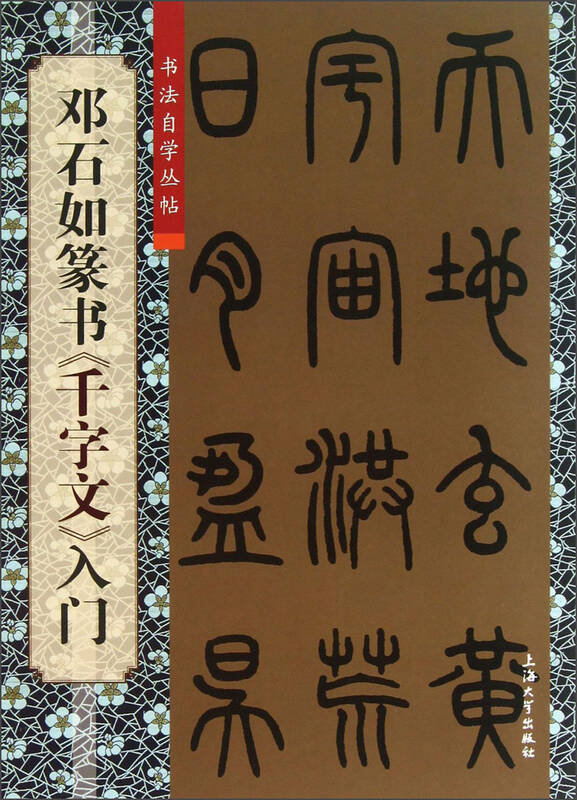 书法自学丛帖
邓石如篆书《千字文》入门
天地玄黄
宇宙洪荒
日月盈昃
上海大学出版社